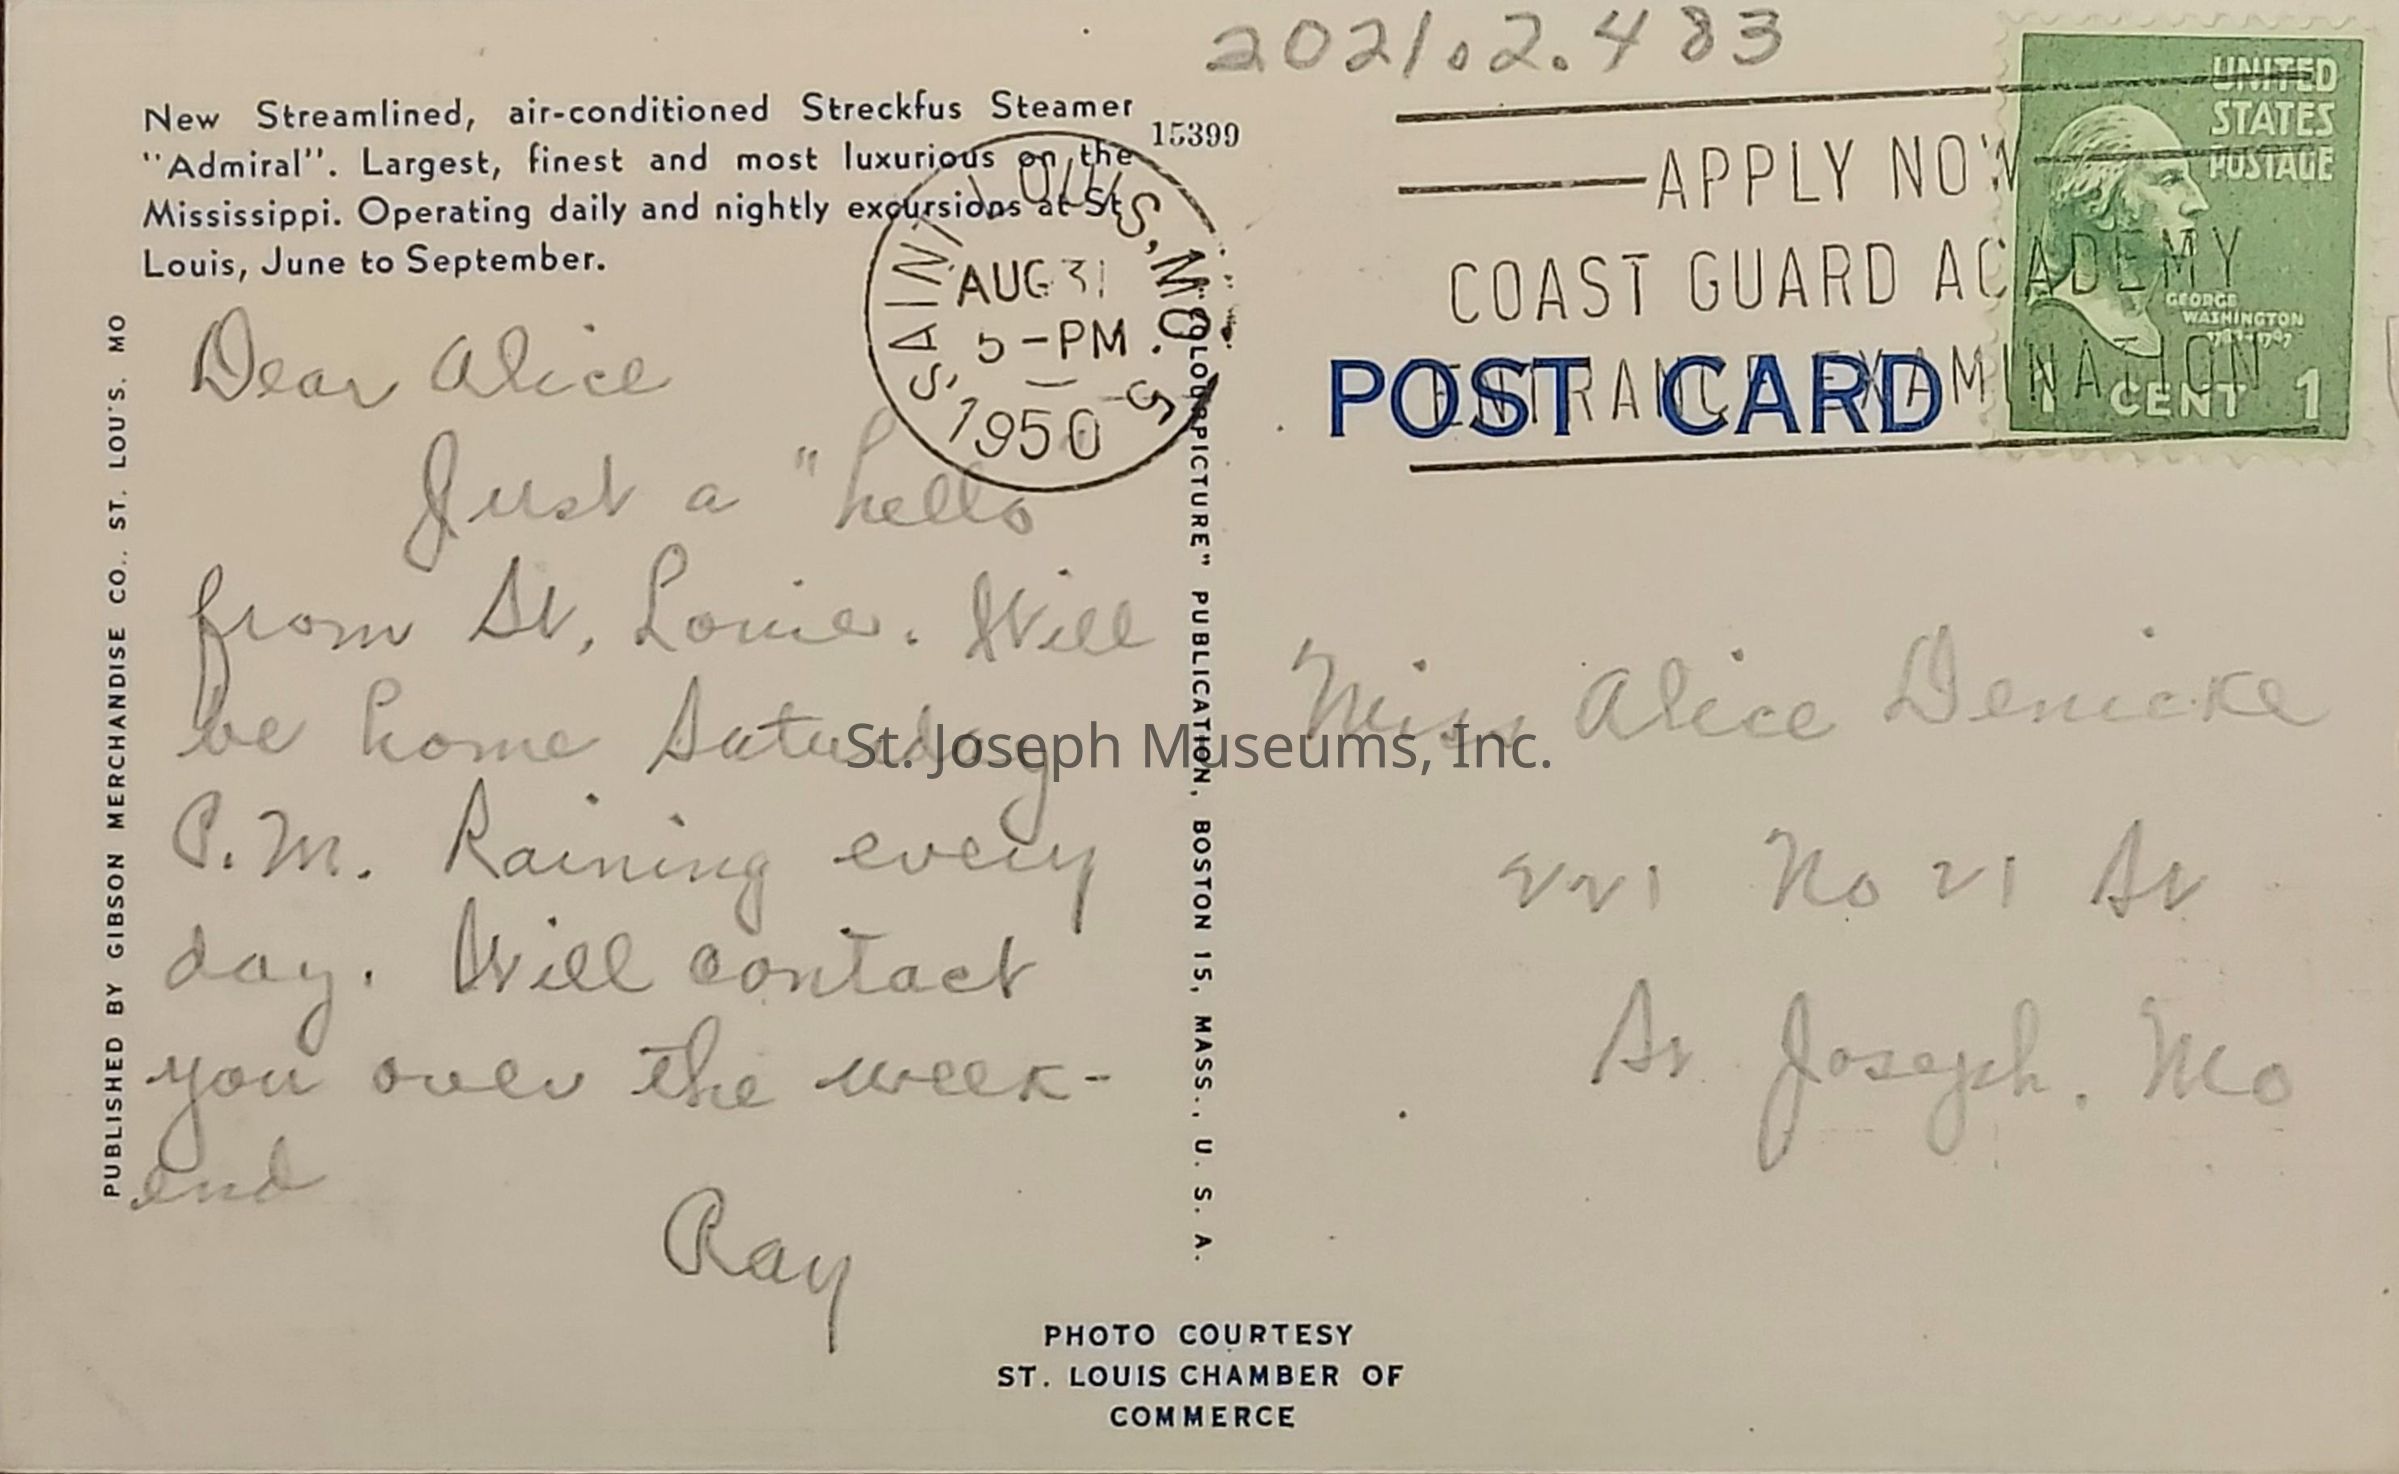 2021.2.483
New Streamlined, air-conditioned Streckfus Steamer
"Admiral". Largest, finest and most luxurious on the
Mississippi. Operating daily and nightly excursions at St.
Louis, June to September.
15399
SAINT LOUIS, MO.
AUG 31
5-PM
1950
5
APPLY NOW
COAST GUARD ACADEMY
ENTRANCE EXAMINATION
UNITED
STATES
POSTAGE
GEORGE
WASHINGTON
1 CENT 1
POST CARD
PUBLISHED BY GIBSON MERCHANDISE CO., ST. LOUIS, MO
Dear Alice
Just a "hello
from St. Louis. Will
be home Saturday
P.M. Raining every
day. Will contact
you over the week-
end
Ray
COLOURPICTURE" PUBLICATION, BOSTON 15, MASS., U. S. A.
Miss Alice Denicke
221 No 21 St
St Joseph. Mo
St. Joseph Museums, Inc.
PHOTO COURTESY
ST. LOUIS CHAMBER OF
COMMERCE